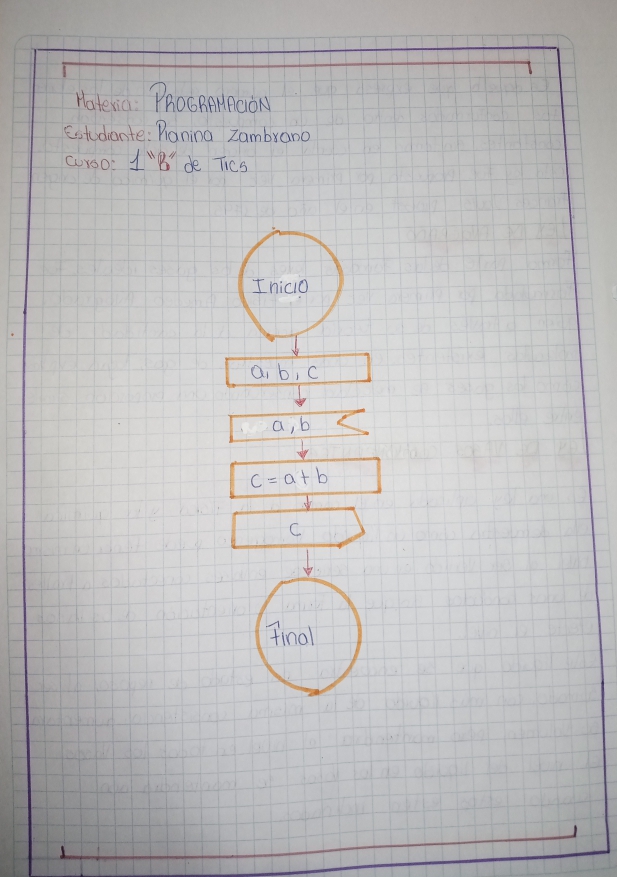 Materia: PROGRAMACIÓN
Estudiante: Pianina Zambrano
Curso: 1 "B" de TICS
Inicio
a, b, c
a, b
c = a + b
c
Final